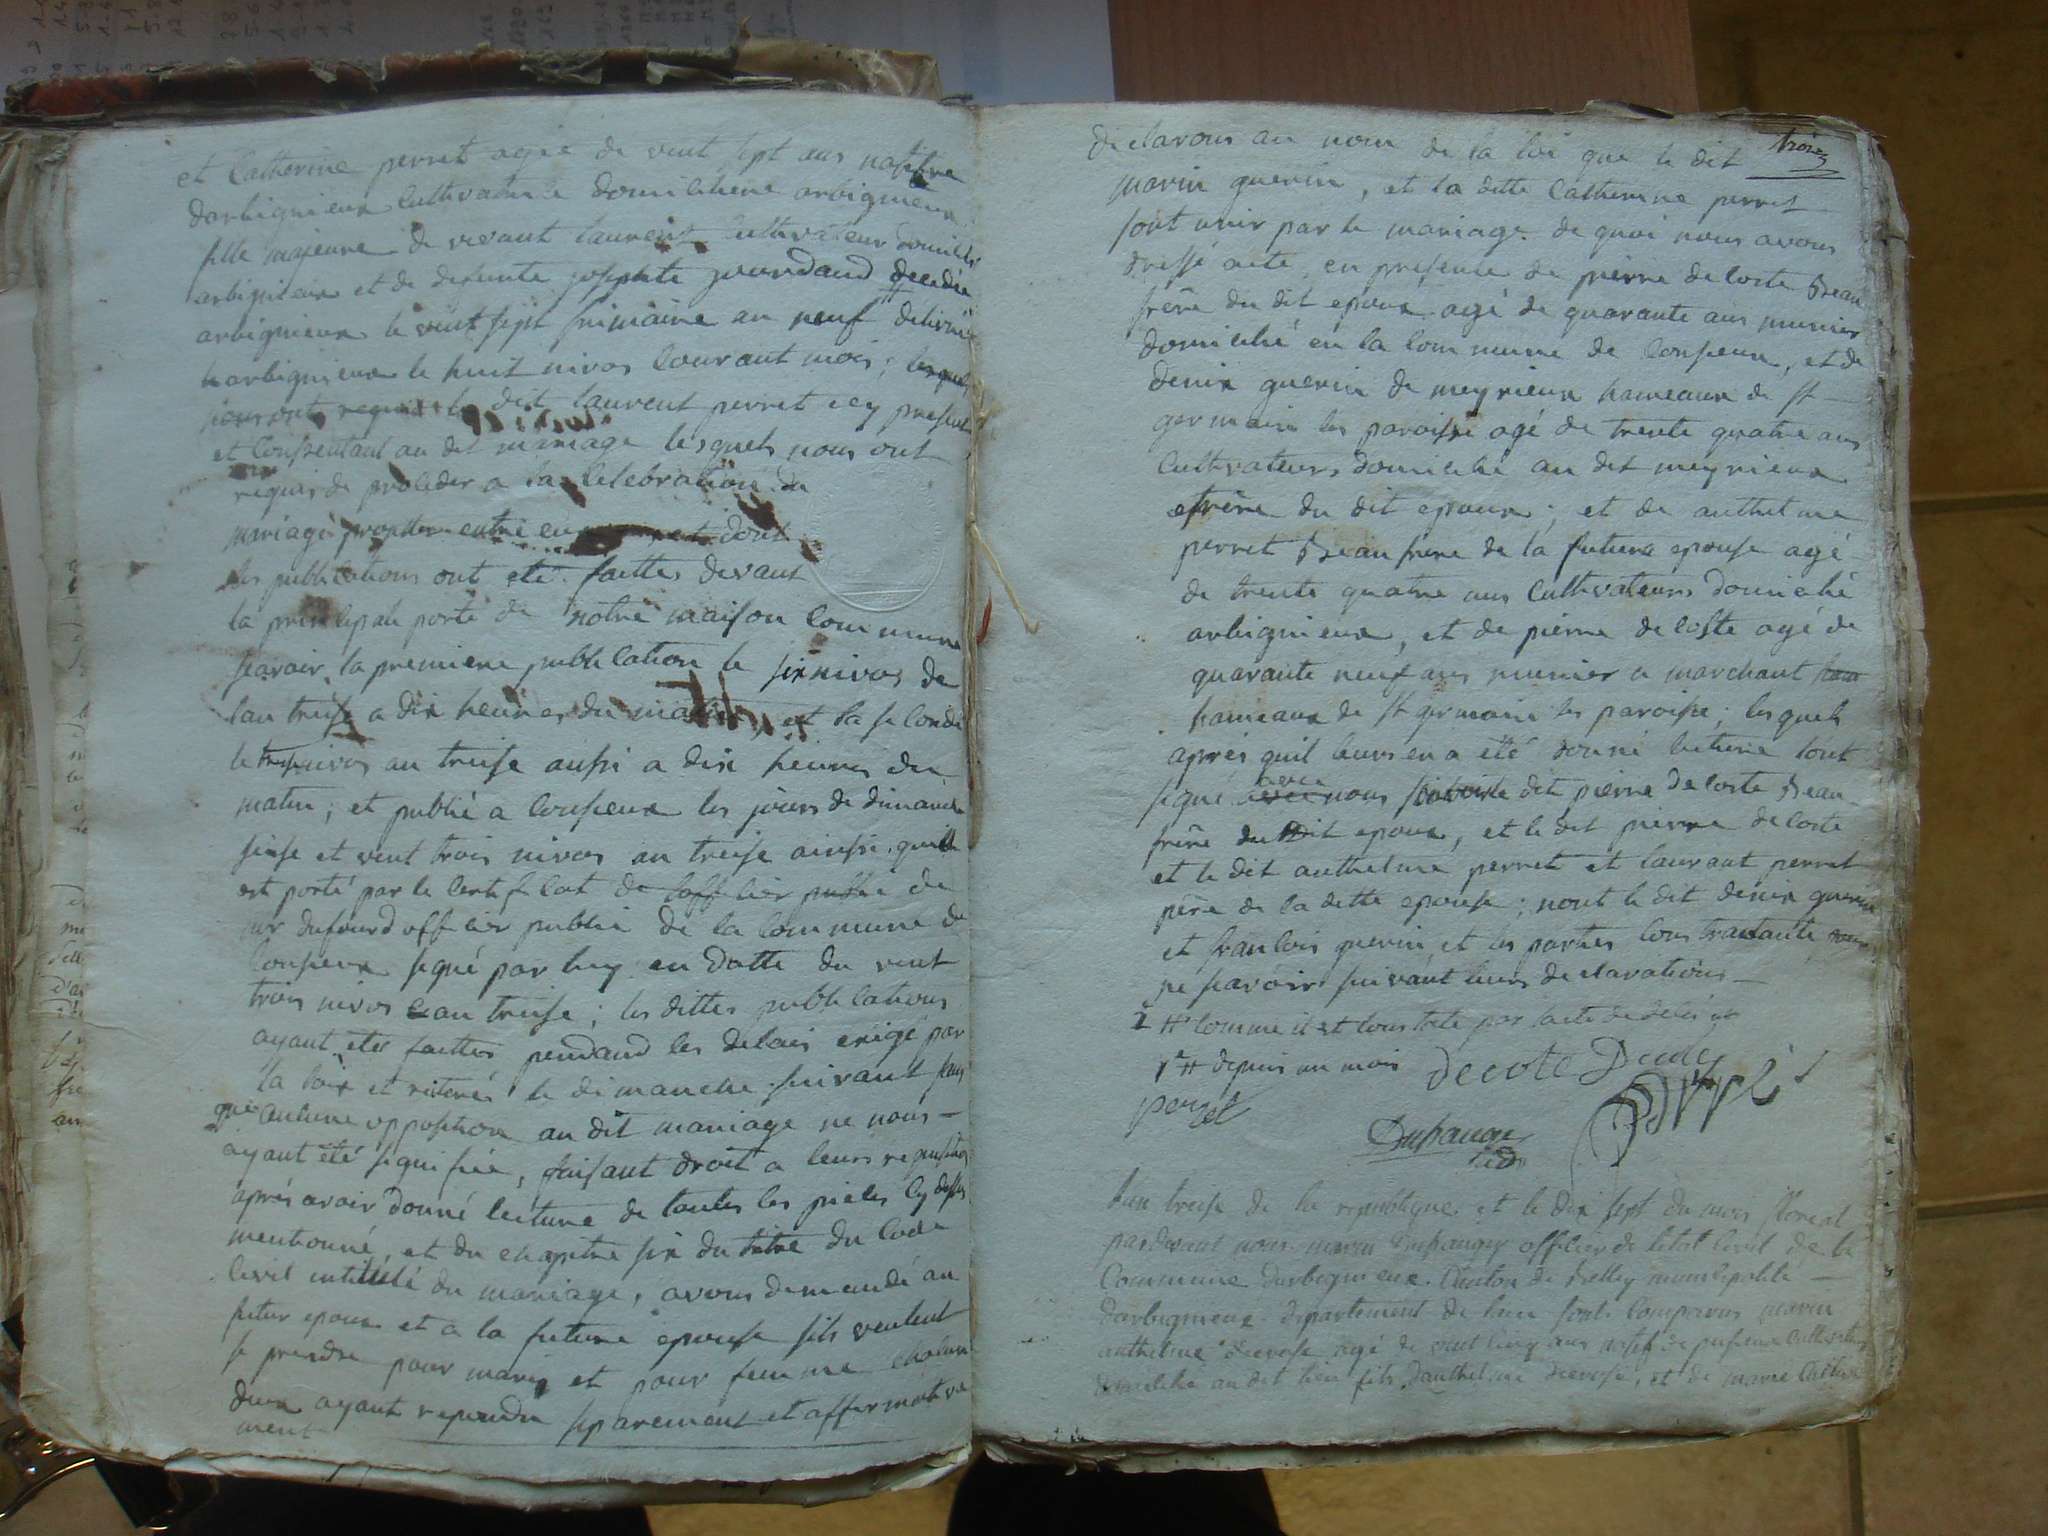 et Catherine perret agée de vent sept ans natifve
darbignieux Cultivatrice domiciliene arbignieux
fille majeure de vivant laurent Cultivateur domicilié
arbignieux et de defunte josephte decedée
arbignieux le vint sept frimaire an neuf delivré
harbignieux le huit nivos Courant mois; 
le dit laurent perret icy present
et Consentant au dit mariage lesquels nous ont
requis de proceder a la Celebration du
mariage entre eux et dont
les publications ont eté faittes devant
la principale porte de notre maison Commune
scavoir la premiere publication le six nivos de
lan treise a dix heures du matin, et la seconde
le nivos an treise aussi a dix heures du
matin; et publié a Conzieux les jours de dimanche
seise et vent trois nivos an treise ainsi quil
est porté par le Certificat de loffisier public de
sur dufourd offisier public de la Commune de
Conzieux signé par luy en datte du vent
trois nivos an treise; les dittes publications
ayant etés faittes pendand les delais exigé par
la loix et reiterés le dimanche suivant sans
que aucune opposition au dit mariage ne nous
ayant été signifiée, faisant droit a leurs requisition
aprés avoir donné lecture de toutes les pieces cy dessus
mentionné, et du chapitre six du titre du Code
Civil intitulé du mariage, avons demandé au
futur epoux et a la future epouse sils veulent
se prendre pour marij et pour femme chacun
deux ayant repondu separement et affermative
ment
troiz
declarons au nom de la loi que le dit
marin guerin, et la ditte Catherine perret
sont unir par le mariage de quoi nous avons
dressé acte, en presence de pierre decoste Beau
frére du dit epoux agé de quarante ans munier
domicilié en la Commune de Conzieux, et de
denix guerin de meyrieux hameaux de st
germain les paroisse agé de trente quatre ans
Cultivateurs domicilié au dit meyrieux
frére du dit epoux; et de anthelme
perret Beau frére de la future epouse agé
de trente quatre ans Cultivateurs domicilié
arbignieux, et de pierre decoste agé de
quarante neuf ans munier a marchant
hameaux de st germain les paroisse; lesquels
aprés quil leurs en a été donné lecture lont
signé avec nous le dit pierre decoste Beau
frére du dit epoux, et le dit pierre decoste
et le dit anthelme perret et laurant perret
pére de la ditte epouse; nont le dit denix guerin
et francois guerin et les parties Contractante
ne scavoir suivant leurs declarations
2 # Comme il est Constaté par lacte de déces
1r # depuis un mois decote
perret
Duhauger
lan treise de la republique et le dix sept du mois floreal
pardevant nous marin Duhauger officier de letat Civil de la
Commune darbignieux Canton de Belley municipalité
darbignieux departement de lain sont Comparus marin
anthelme agé de vent cinq ans natif de Cultivateur
domicilié au dit lieu fils danthelme et de marie